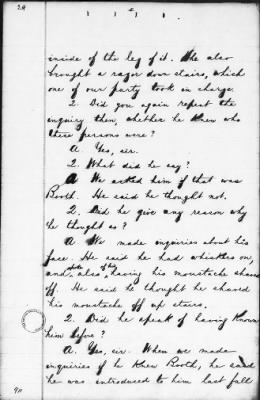 28
2
inside of the leg of it. He also
brought a razor down stairs, which
one of our party took in charge.
Q. Did you again repeat the
enquiry then, whether he knew who
these persons were?
A Yes, sir.
Q. What did he say?
A We asked him if that was
Booth. He said he thought not.
Q. Did he give any reason why
he thought so?
A We made enquiries about his
face. He said he had whiskers on,
and also having his moustache shaved
off. He said he thought he shaved
his moustache off up stairs.
Q. Did he speak of having known
him before?
A. Yes, sir. When we made
enquiries if he knew Booth, he said
he was introduced to him last fall